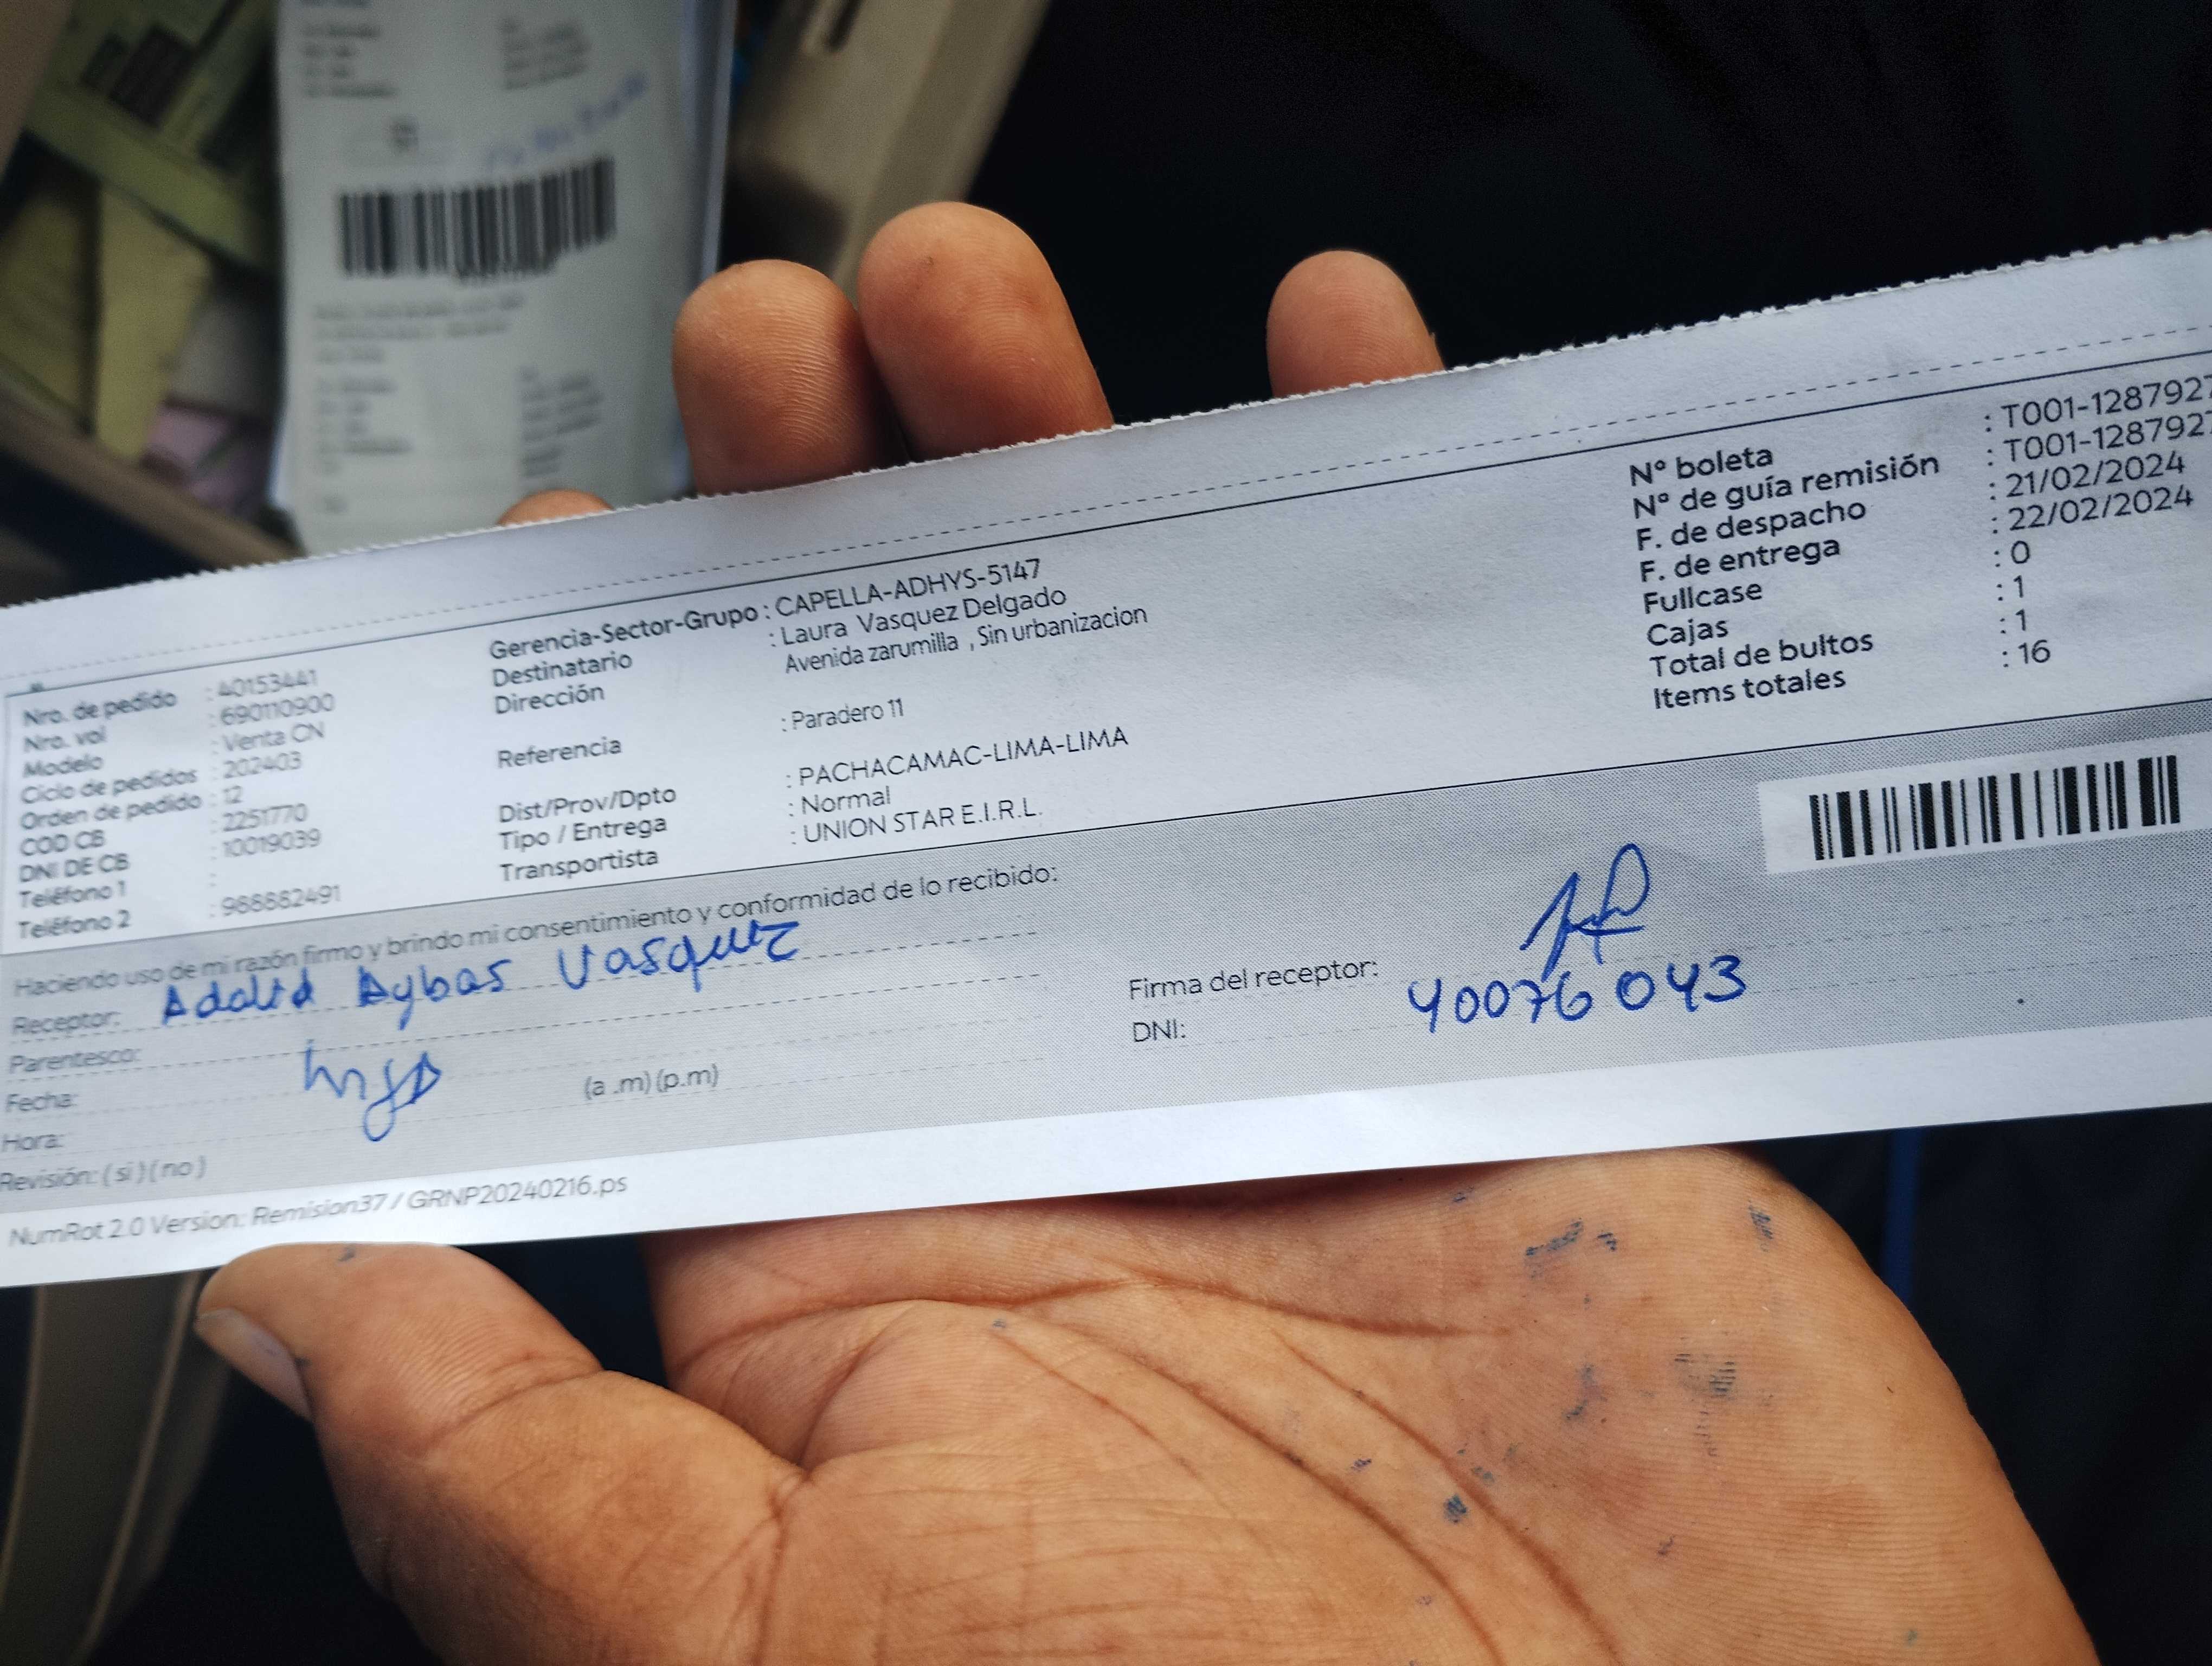 Nro. de pedido : 40153441
Nro. vol : 690110900
Modelo : Venta CN
Ciclo de pedidos : 202403
Orden de pedido : 12
COD CB : 2251770
DNI DE CB : 10019039
Teléfono 1 :
Teléfono 2 : 988882491
Gerencia-Sector-Grupo : CAPELLA-ADHYS-5147
Destinatario : Laura Vasquez Delgado
Dirección Avenida zarumilla , Sin urbanizacion
Referencia : Paradero 11
Dist/Prov/Dpto : PACHACAMAC-LIMA-LIMA
Tipo / Entrega : Normal
Transportista : UNION STAR E.I.R.L.
Nº boleta : T001-1287927
Nº de guía remisión : T001-128792
F. de despacho : 21/02/2024
F. de entrega : 22/02/2024
Fullcase : 0
Cajas : 1
Total de bultos : 1
Items totales : 16
Haciendo uso de mi razón firmo y brindo mi consentimiento y conformidad de lo recibido:
Receptor: Aybas Vasquez
Parentesco:
Fecha:
Hora: (a .m) (p.m)
Revisión: ( si ) ( no )
Firma del receptor:
DNI: 40076043
NumRot 2.0 Version: Remision37 / GRNP20240216.ps